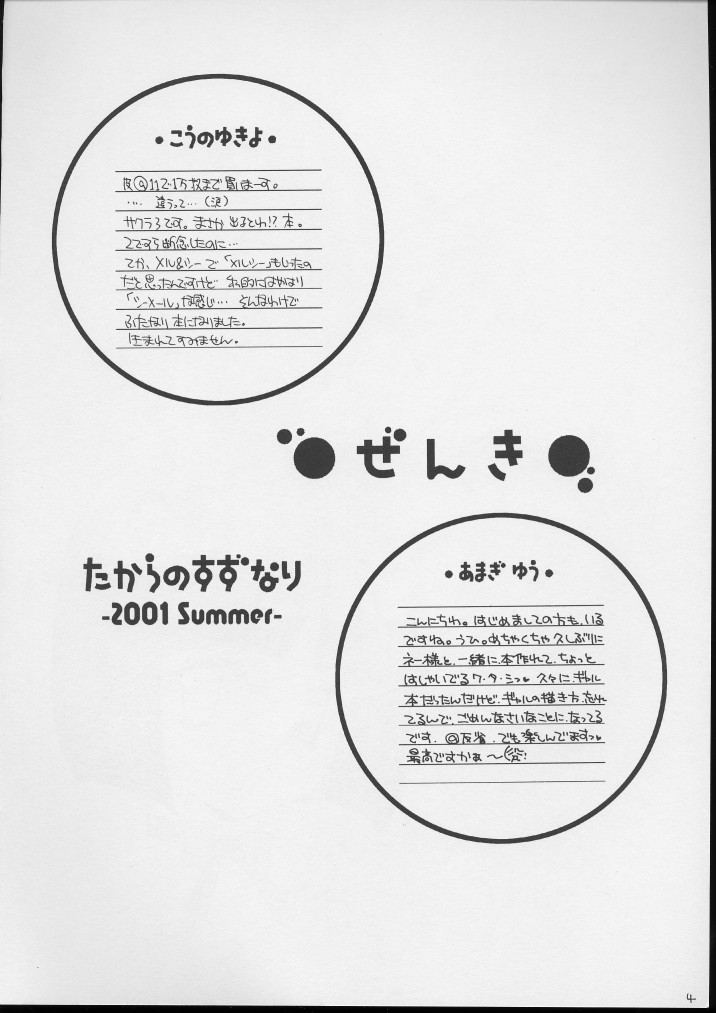 ・こうのゆきよ・
@112・1万枚まで買いまーす。
…. 違うって…(涙)
サクラ3です。まさか出るとわ!?本。
2ですら断念したのに…
てか、メル&シーで「メルシー」もじったの
だと思ったんですけど 私的にはやはり
「シーメール」な感じ… そんなわけで
ふたなり本になりました。
生まれてすみません。
ぜんき
たからのすずなり
-2001 Summer-
・あまぎ ゆう・
こんにちわ。はじめましての方も、いる
ですね。うひ。めちゃくちゃ久しぶりに
ネー様と、一緒に、本作れて、ちょっと
はしゃいでるワ・タ・シっ♥ 久々に、ギャル
本だったんだけど、ギャルの描き方、忘れ
てるんで、ごめんなさいなことに、なってる
です. @反省. でも楽しんでますっ♥
最高ですかぁ〜
4